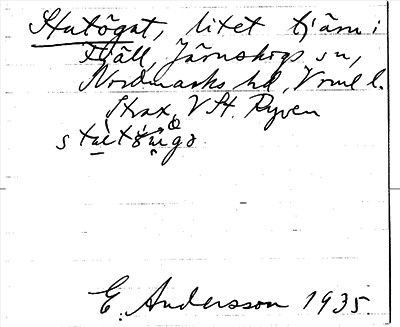 Stutögat, litet tjärn i
Fjäll, Järnskogs sn,
Nordmarks hd, Vrml l.
Strax V St. Ryven
E. Andersson 1935.